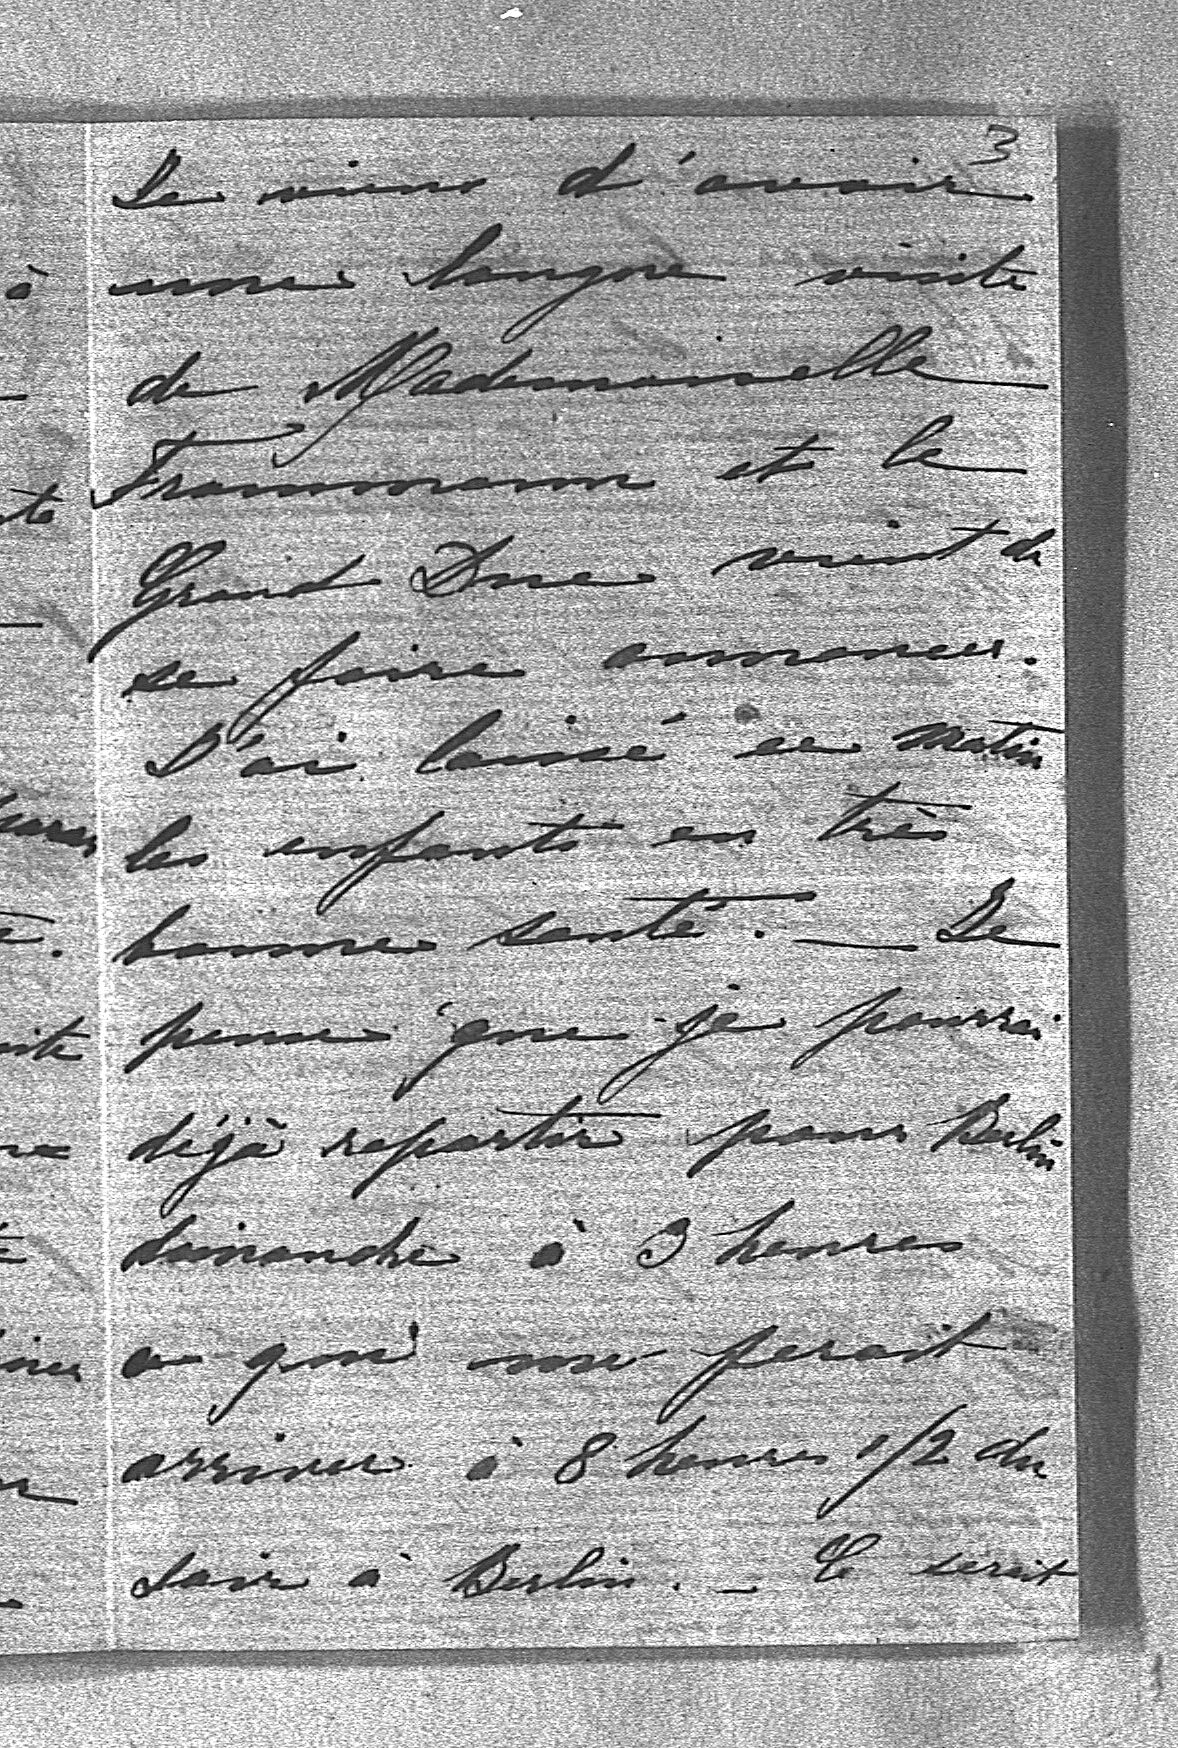 3
Je viens d'avoir
une longue visite
de Mademoiselle
Frommann et le
Grand Duc vient de
se faire annoncer.
J'ai laissé ce matin
les enfants en très
bonne santé. — Je
pense que je pourrai
déjà repartir pour Berlin
dimanche à 3 heures
ce qui me ferait
arriver à 8 heures 1/2 du
soir à Berlin. — Ce serait